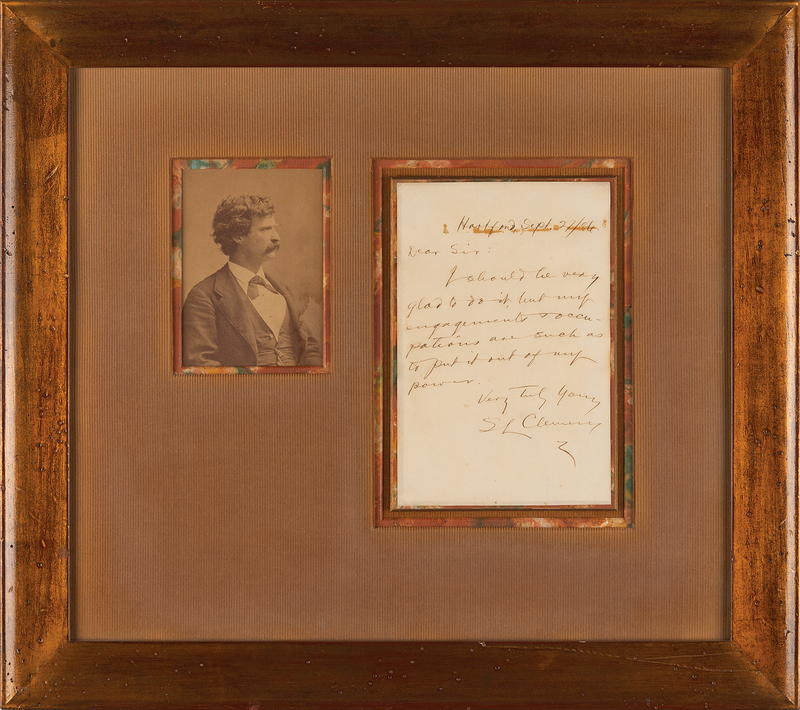 Hartford, Sept. 22/86
Dear Sir:
I should be very
glad to do it but my
engagements & occu-
pations are such as
to put it out of my
power.
Very Truly Yours
S L Clemens